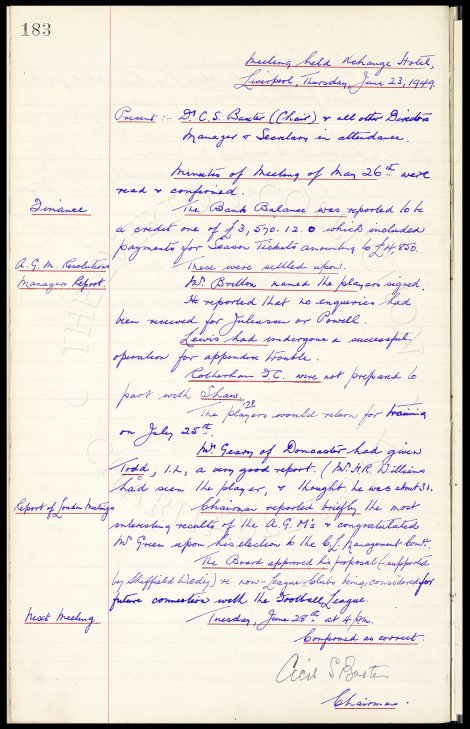 183
Meeting held Xchange Hotel,
Liverpool, Thursday, June 23, 1949.
Present :- Dr. C. S. Baxter (Chair) & all other Directors
Manager & Secretary in attendance.
Minutes of Meeting of May 26th were
read & confirmed.
Finance
The Bank Balance was reported to be
a credit one of £3,590.12.0 which included
payments for Season Tickets amounting to £4,850.
A.G.M. Resolutions
These were settled upon.
Managers Report.
Mr. Britton named the players signed.
He reported that no enquiries had
been received for Juliussen or Powell.
Lewis had undergone a successful
operation for appendix trouble.
Rotherham F.C. were not prepared to
part with Shaw.
The players would return for training
on July 25th.
Mr. Geary of Doncaster had given
Todd, I.L, a very good report. (Mr. H.R. Williams
had seen the player, & thought he was about 31.
Report of London Meetings
Chairman reported briefly the most
interesting results of the A.G.M's & congratulated
Mr Green upon his election to the C.L. Management Com.
The Board approved his proposal (supported
by Sheffield Wedy) re non-League Clubs being considered for
future connection with the Football League.
Next Meeting
Tuesday, June 28th at 4 p.m.
Confirmed as correct.
Cecil S Baxter
Chairman.